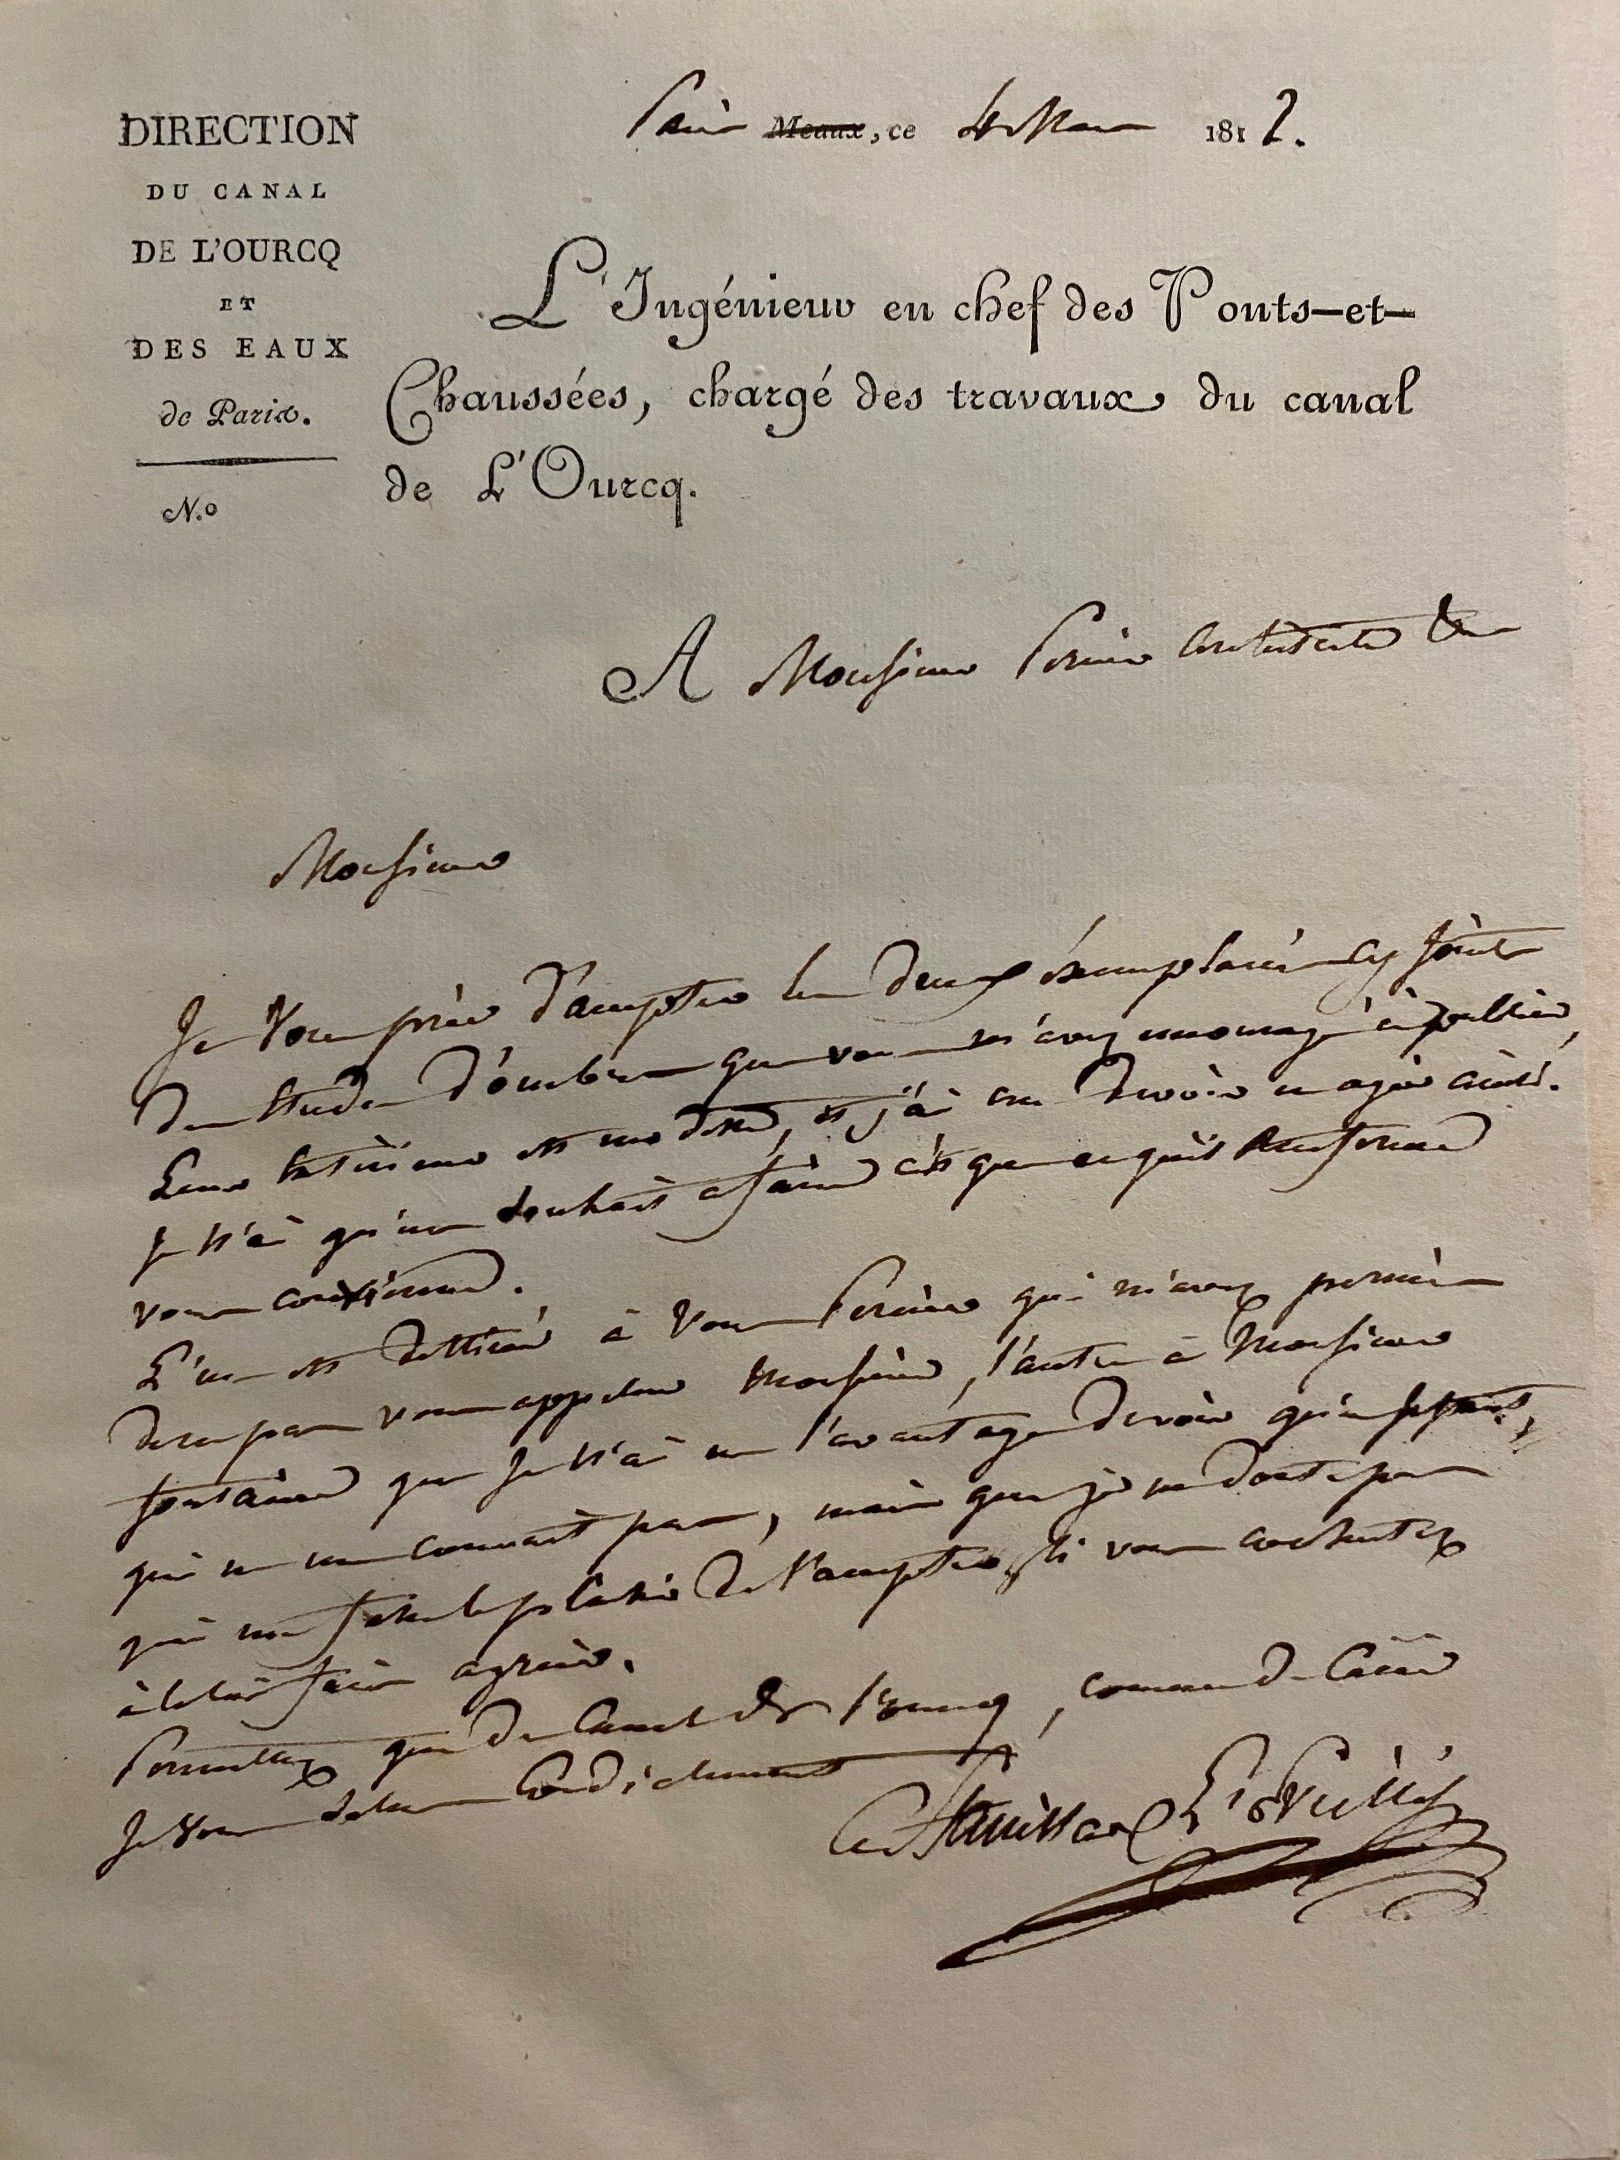 DIRECTION
DU CANAL
DE L'OURCQ
ET
DES EAUX
de Paris.
N.o
Paris Meaux, ce 4 Mars 1812.
L'Ingénieur en chef des Ponts-et-
Chaussées, chargé des travaux du canal
de L'Ourcq.
A Monsieur Percier architecte
Monsieur
Je vous prie d'accepter les deux éxemplaires cy joints
des études d'ombres que vous m'avez encouragé à publier,
Leur est modeste, et j'ai cru devoir en agir ainsi.
Je n'ai qu'un souhait a faire c'est que ce qu'ils renferment
vous convienne.
L'un est destiné à vous Percier qui m'avez permis
de ne pas vous appeler Monsieur, l'autre à Monsieur
fontaine que je n'ai eu l'avantage de voir qu'en
qui ne me connait pas, mais que je ne doute pas
qui me fasse le plaisir de l'accepter, si vous consentez
à le lui faire agréer.
Permettez que du Canal de l'Ourcq, comme de
Je vous salue Cordialement
L'Eveillé